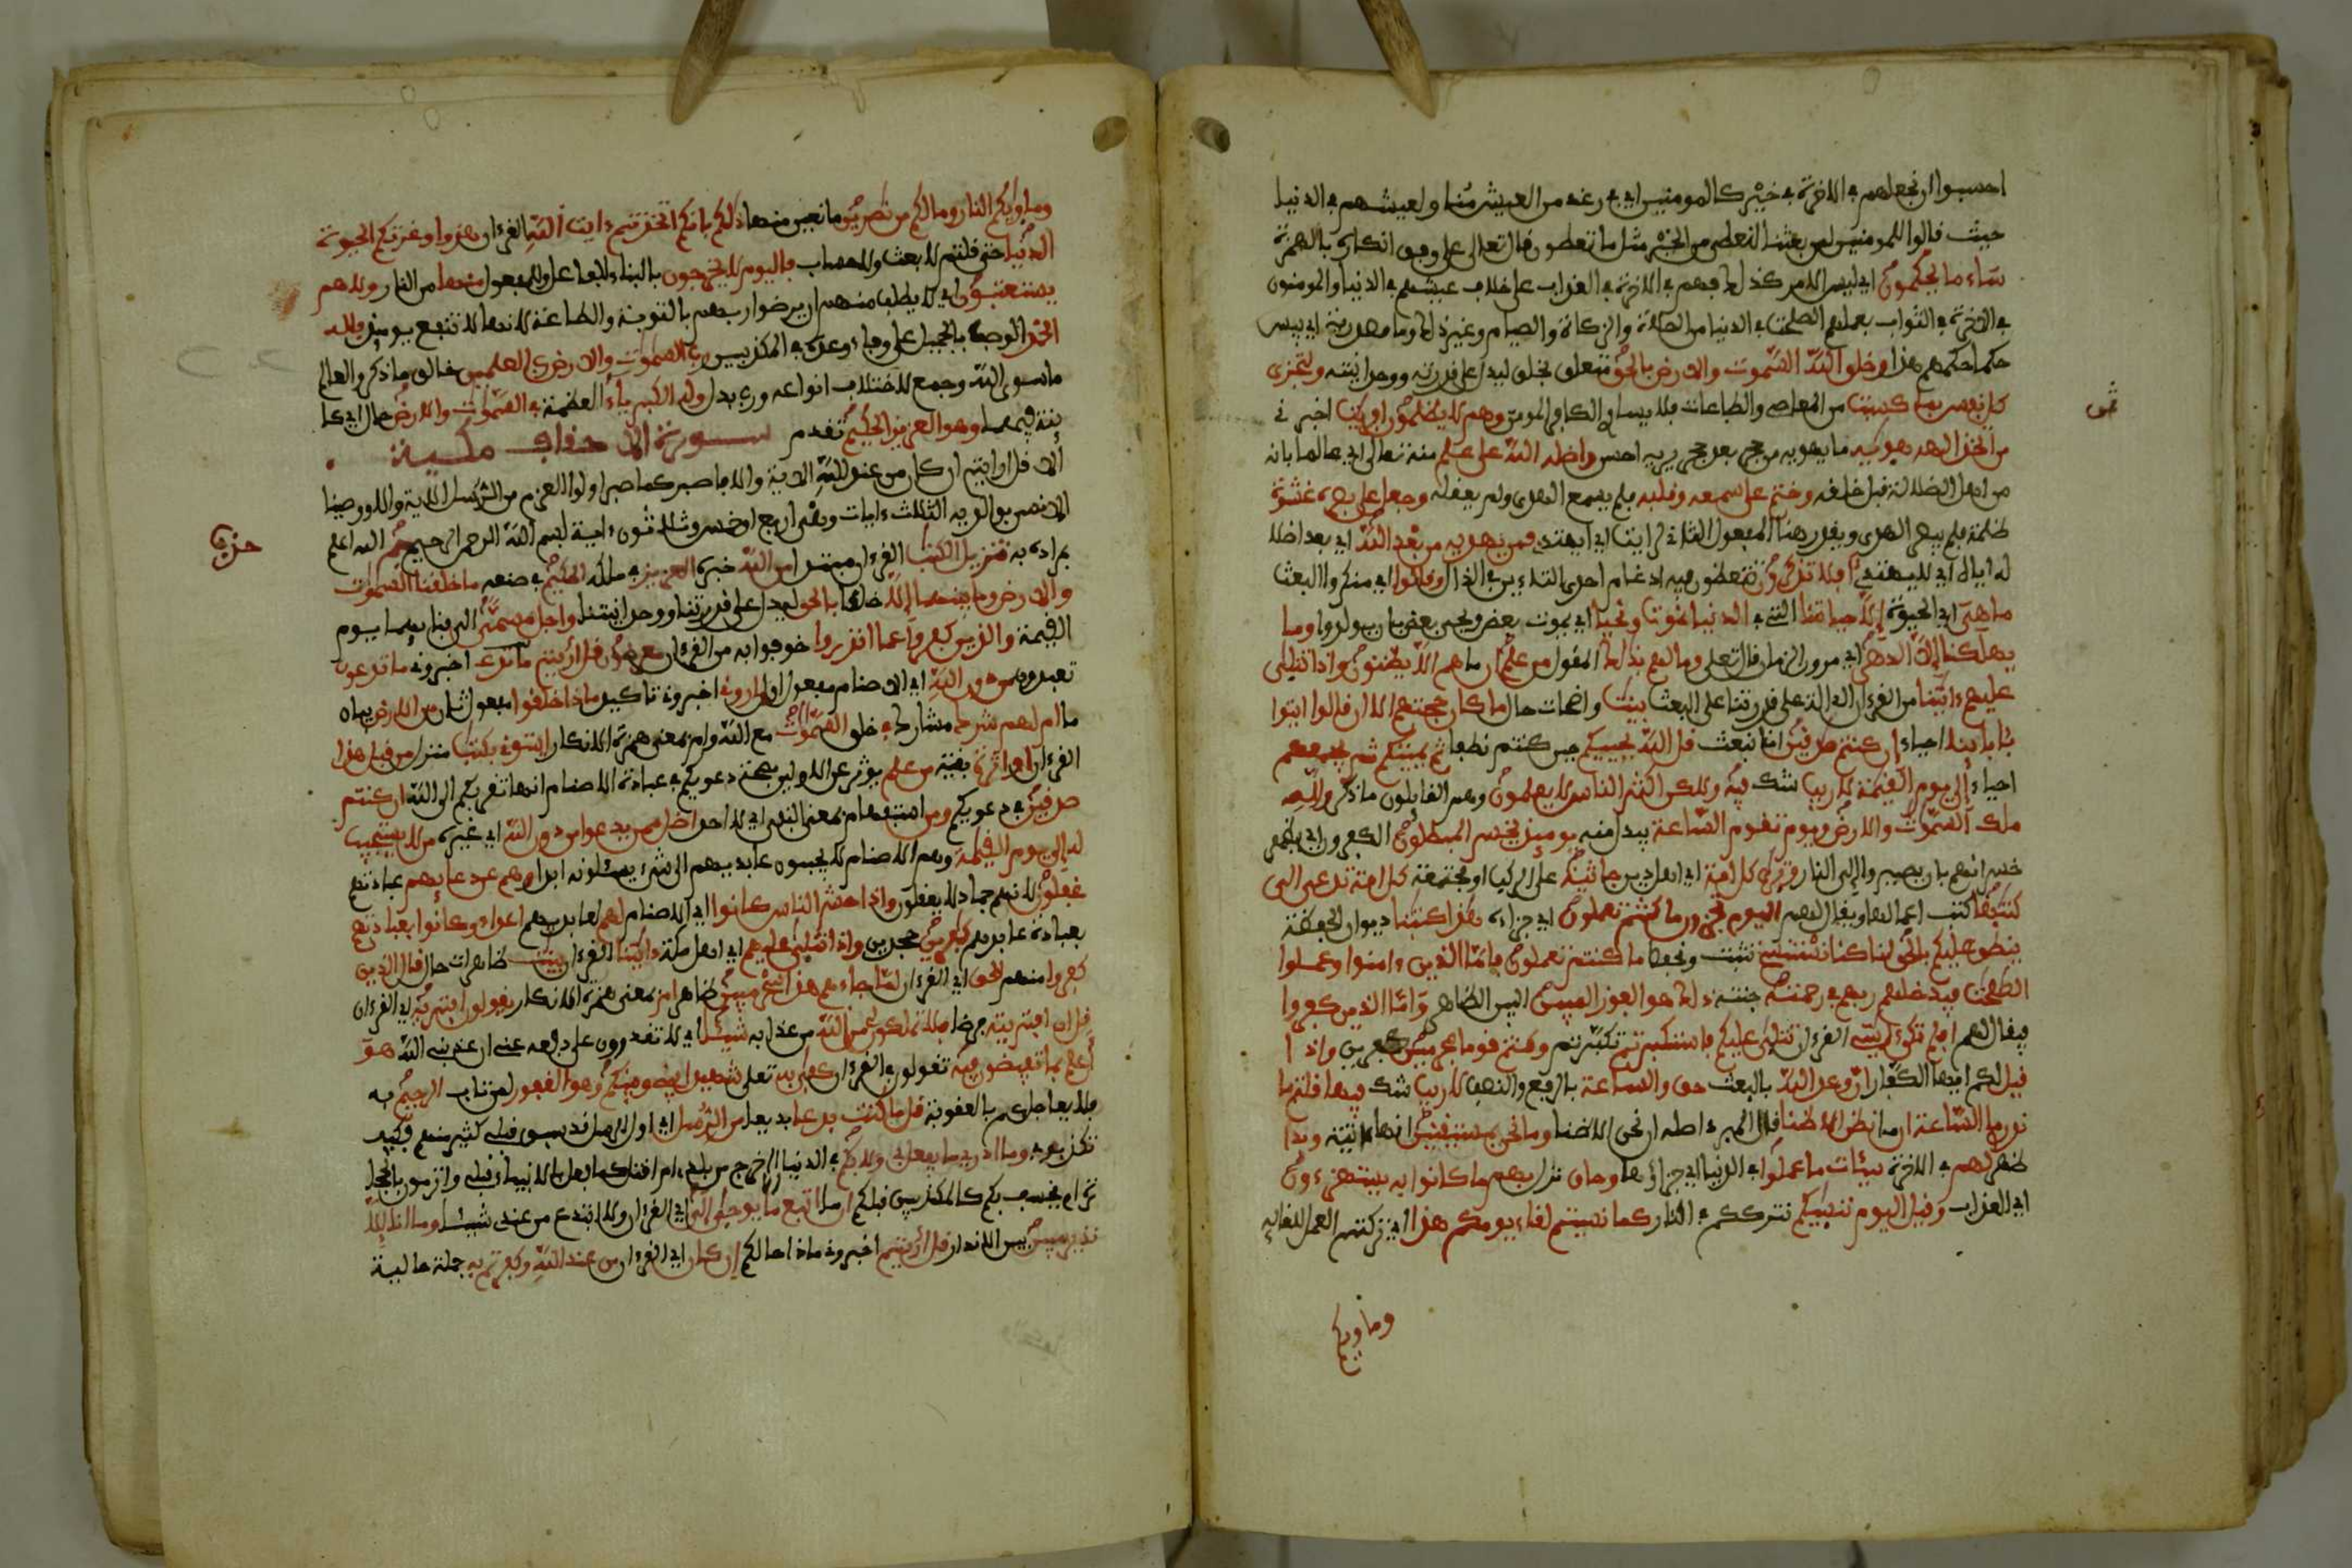 احسبوا ان نجعلهم في الاخرة في خير كالمومنين اي في رغد من العيش مثل ولعيشهم في الدنيا
حيث قالوا للمومنين لين بعثنا لنعطى من الخير مثل ما تعطون قال تعالى على وفق انكاره بالهمزة
ساء ما يحكمون اي ليس الامر كذلك فهم في الاخرة في العذاب على خلاف عيشهم في الدنيا والمومنون
في الاخرة في الثواب بعملهم الصلحت في الدنيا من الصلاة والزكاة والصيام وغير ذلك وما مصدرية اي بيس
حكما حكمهم هذا وخلق الله السموت والارض بالحق متعلق بخلق ليدل على قدرته ووحدانيته ولتجزى
كل نفس بما كسبت من المعاصي والطاعات فلا يساوي الكافر المومن وهم لا يظلمون افريت اخبرني
من اتخذ الهه هويه ما يهويه من حجر بعد حجر يريه احسن واضله الله على علم منه تعالى اي عالما بانه
من اهل الضلالة قبل خلقه وختم على سمعه وقلبه فلم يسمع الهدى ولم يعقله وجعل على بصره غشوة
ظلمة فلم يبصر الهدى ويقدر هنا المفعول الثاني لرايت اي ايهتدي فمن يهديه من بعد الله اي بعد اضلا
له اياه اي لا يهتدي افلا تذكرون تتعظون فيه ادغام احدى التاءين في الذال وقالوا اي منكروا البعث
ما هي اي الحيوة الا حياتنا التي في الدنيا نموت ونحيا اي يموت بعض ويحيى بعض بان يولدوا وما
يهلكنا الا الدهر اي مرور الزمان قال تعالى وما لهم بذلك المقول من علم ان ما هم الا يظنون واذا تتلى
عليهم ءايتنا من القرءان الدالة على قدرتنا على البعث بينت واضحات حال ما كان حجتهم الا ان قالوا ايتوا
بئابائنا احياء ان كنتم صدقين انا نبعث قل الله يحييكم حين كنتم نطفا ثم يميتكم ثم يجمعكم
احياء الى يوم القيمة لا ريب شك فيه ولكن اكثر الناس لا يعلمون وهم القايلون ما ذكر ولله
ملك السموت والارض ويوم تقوم الساعة يبدل منه يوميذ يخسر المبطلون الكفرون اي يظهر
خسرانهم بان يصيروا الى النار وترى كل امة اي اهل دين جاثية على الركب او مجتمعة كل امة تدعى الى
كتبها كتب اعمالها ويقال لهم اليوم تجزون ما كنتم تعملون اي جزاءه هذا كتبنا ديوان الحفظة
ينطق عليكم بالحق انا كنا نستنسخ نثبت ونحفظ ما كنتم تعملون فاما الذين ءامنوا وعملوا
الصلحت فيدخلهم ربهم في رحمته جنته ذلك هو الفوز المبين البين الظاهر واما الذين كفروا
فيقال لهم افلم تكن ءايتي القرءان تتلى عليكم فاستكبرتم تكبرتم وكنتم قوما مجرمين كفرين واذا
قيل لكم ايها الكفار ان وعد الله بالبعث حق والساعة بالرفع والنصب لا ريب شك فيها قلتم ما
ندري ما الساعة ان ما نظن الا ظنا قال المبرد اصله ان نحن الا نظن ظنا وما نحن بمستيقنين انها ءاتية وبدا
ظهر لهم في الاخرة سيئات ما عملوا في الدنيا اي جزاؤها وحاق نزل بهم ما كانوا به يستهزءون
اي العذاب وقيل اليوم ننسيكم نترككم في النار كما نسيتم لقاء يومكم هذا اي تركتم العمل للقائه
وماويكم
وماويكم النار وما لكم من نصرين مانعين منها ذلكم بانكم اتخذتم ءايت الله القرءان هزوا وغرتكم الحيوة
الدنيا حتى قلتم لا بعث ولا حساب فاليوم لا يخرجون بالبناء للفاعل وللمفعول منها من النار ولا هم
يستعتبون اي لا يطلب منهم ان يرضوا ربهم بالتوبة والطاعة لانها لا تنفع يوميذ فلله
الحمد الوصف بالجميل على وفاء وعده في المكذبين رب السموت والارض رب العلمين خالق ما ذكر والعالم
ما سوى الله وجمع لاختلاف انواعه ورب بدل وله الكبرياء العظمة في السموت والارض حال اي كا
ئنة فيهما وهو العزيز الحكيم تقدم سورة الاحقاف مكية
الا قل ارايتم ان كان من عند الله الاية والا فاصبر كما صبر اولوا العزم من الرسل الاية والا ووصينا
الانسن بوالديه الثلث ءايات وهي اربع او خمس وثلاثون ءاية بسم الله الرحمن الرحيم حم الله اعلم
بمراده به تنزيل الكتب القرءان مبتدا من الله خبره العزيز في ملكه الحكيم في صنعه ما خلقنا السموت
والارض وما بينهما الا خلقا بالحق ليدل على قدرتنا ووحدانيتنا واجل مسمى الى فنايهما يوم
القيمة والذين كفروا عما انذروا خوفوا به من القرءان معرضون قل ارءيتم ما تدعون اخبروني ما تدعون
تعبدون من دون الله اي الاصنام مفعول اول اروني اخبروني تاكيد ماذا خلقوا مفعول ثان من الارض بيان
ما ام لهم شرك مشاركة في خلق السموت مع الله وام بمعنى همزة الانكار ايتوني بكتب منزل من قبل هذا
القرءان او اثرة بقية من علم يوثر عن الاولين بصحة دعويكم في عبادة الاصنام انها تقربكم الى الله ان كنتم
صدقين في دعويكم ومن استفهام بمعنى النفي اي لا احد اضل ممن يدعوا من دون الله اي غيره من لا يستجيب
له الى يوم القيمة وهم الاصنام لا يجيبون عابديهم الى شيء يسئلونه ابدا وهم عن دعايهم عبادتهم
غفلون لانهم جماد لا يعقلون واذا حشر الناس كانوا اي الاصنام لهم لعابديهم اعداء وكانوا بعبادتهم
بعبادة عابديهم كفرين جحدين واذا تتلى عليهم اي اهل مكة ءايتنا القرءان بينت ظاهرات حال قال الذين
كفروا منهم للحق اي القرءان لما جاءهم هذا سحر مبين ظاهر ام بمعنى همزة الانكار يقولون افتريه اي القرءان
قل ان افتريته فرضا فلا تملكون لي من الله من عذابه شيئا اي لا تقدرون على دفعه عني ان عذبني الله هو
اعلم بما تفيضون فيه تقولون في القرءان كفى به تعالى شهيدا بيني وبينكم وهو الغفور لمن تاب الرحيم به
فلم يعاجلكم بالعقوبة قل ما كنت بدعا بديعا من الرسل اي اول الرسل قد سبق قبلي كثير منهم فكيف
تكذبوني وما ادري ما يفعل بي ولا بكم في الدنيا ااخرج من بلدي ام اقتل كما فعل بالانبياء قبلي وا ترمون بالحجا
رة ام يخسف بكم كالمكذبين قبلكم ان ما اتبع ما يوحى الي اي القرءان ولا ابتدع من عندي شيئا وما انا الا
نذير مبين بين الانذار قل ارءيتم اخبروني ماذا حالكم ان كان اي القرءان من عند الله وكفرتم به جملة حالية
حزب